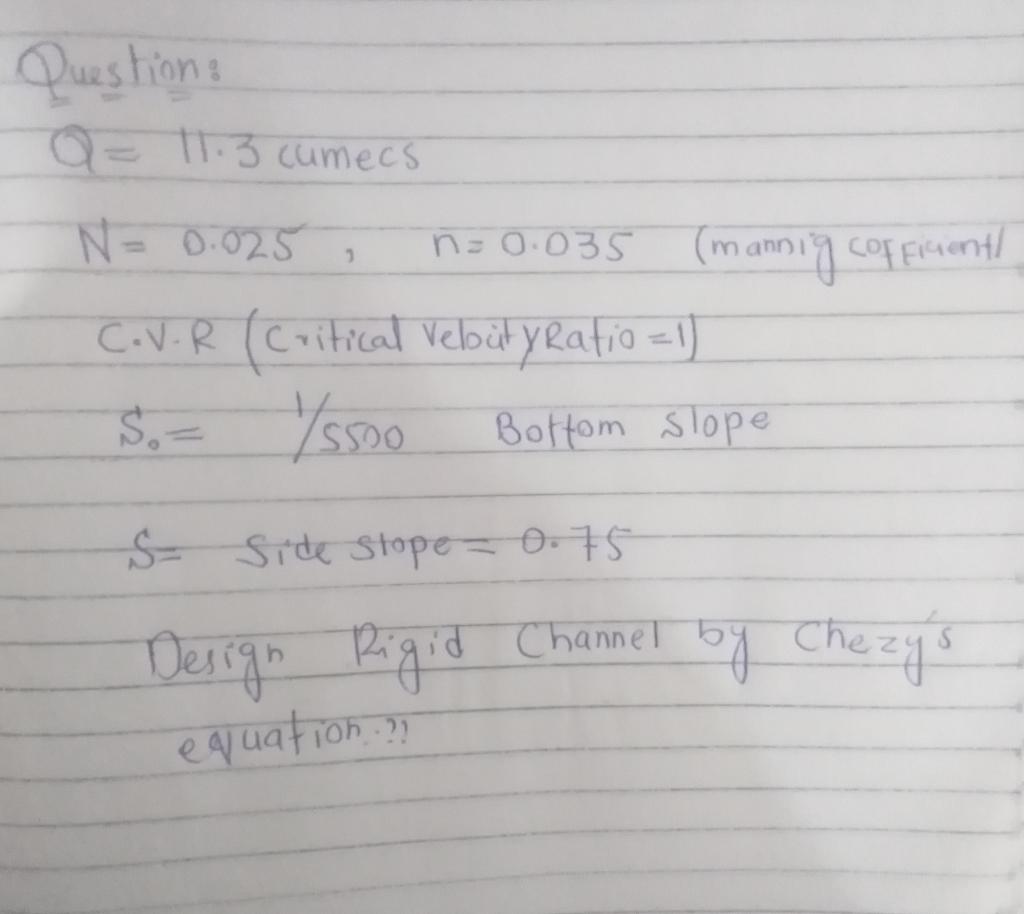 Question:
Q = 11.3 cumecs
N = 0.025 , n = 0.035 (mannig cofficient)
C.V.R (Critical Velocity Ratio = 1)
S₀ = 1/5500 Bottom slope
S = Side slope = 0.75
Design Rigid Channel by Chezy's
equation.??